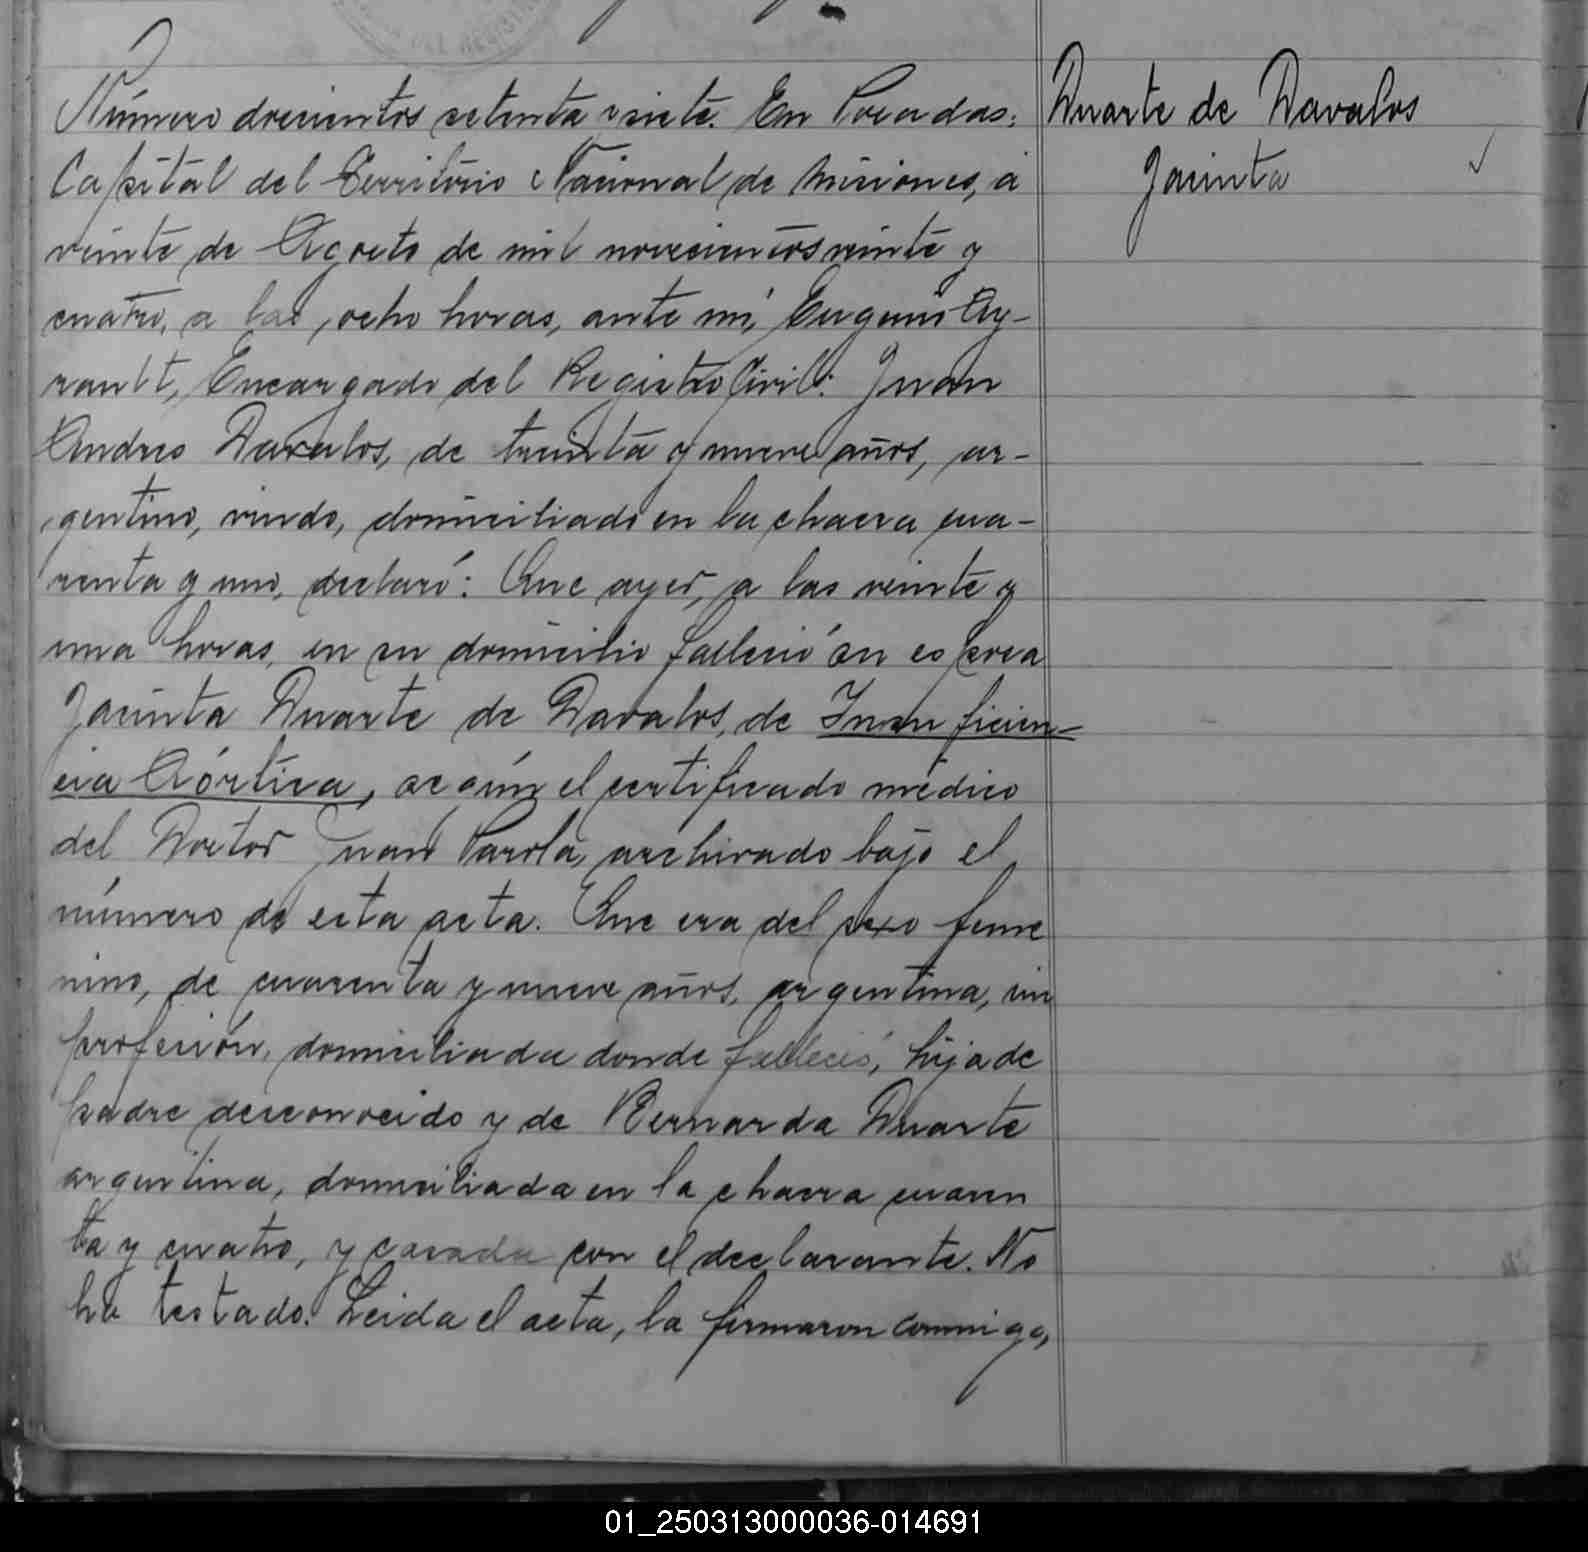 Número doscientos setenta y siete. En Posadas,
Capital del Territorio Nacional de Misiones, a
veinte de Agosto de mil novecientos veinte y
cuatro, a las ocho horas, ante mi, Eugenio Ay-
rault, Encargado del Registro Civil: Juan
Andres Davalos, de treinta y nueve años, ar-
gentino, viudo, domiciliado en la chacra cua-
renta y uno, declaró: Que ayer, a las veinte y
una horas, en su domicilio falleció su esposa
Jacinta Duarte de Davalos, de Insuficien-
cia Aórtica, según el certificado médico
del Doctor Juan Parola, archivado bajo el
número de esta acta. Que era del sexo feme
nino, de cuarenta y nueve años, argentina, sin
profesión, domiciliada donde falleció, hija de
padre desconocido y de Bernarda Duarte
argentina, domiciliada en la chacra cuaren
ta y cuatro, y casada con el declarante. No
ha testado. Leida el acta, la firmaron conmigo,
Duarte de Davalos
Jacinta
01_250313000036-014691